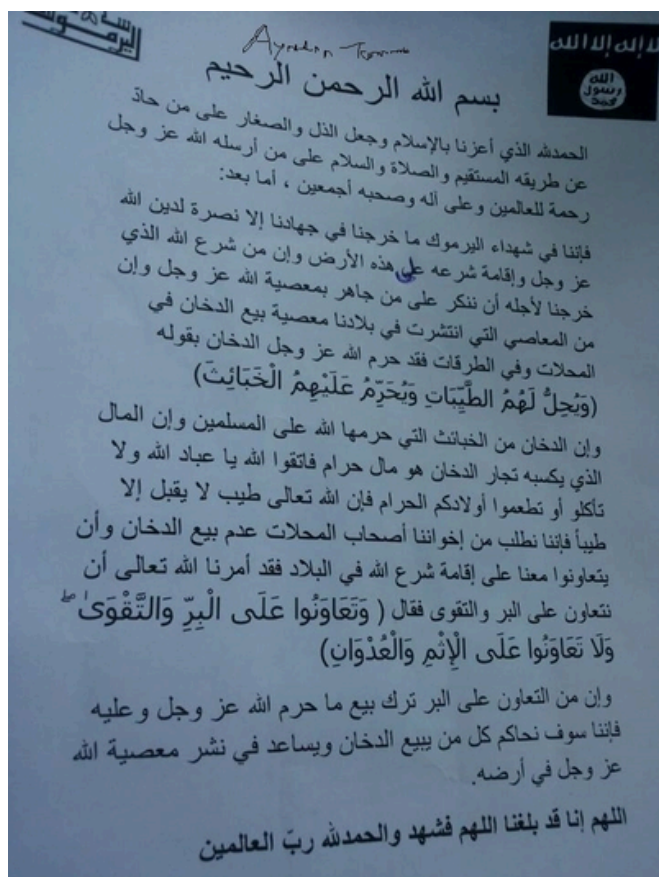 لا إله إلا الله
الله
رسول
محمد
بسم الله الرحمن الرحيم
الحمدلله الذي أعزنا بالإسلام وجعل الذل والصغار على من حاد
عن طريقه المستقيم والصلاة والسلام على من أرسله الله عز وجل
رحمة للعالمين وعلى آله وصحبه أجمعين ، أما بعد:
فإننا في شهداء اليرموك ما خرجنا في جهادنا إلا نصرة لدين الله
عز وجل وإقامة شرعه على هذه الأرض وإن من شرع الله الذي
خرجنا لأجله أن ننكر على من جاهر بمعصية الله عز وجل وإن
من المعاصي التي انتشرت في بلادنا معصية بيع الدخان في
المحلات وفي الطرقات فقد حرم الله عز وجل الدخان بقوله
(وَيُحِلُّ لَهُمُ الطَّيِّبَاتِ وَيُحَرِّمُ عَلَيْهِمُ الْخَبَائِثَ)
وإن الدخان من الخبائث التي حرمها الله على المسلمين وإن المال
الذي يكسبه تجار الدخان هو مال حرام فاتقوا الله يا عباد الله ولا
تأكلو أو تطعموا أولادكم الحرام فإن الله تعالى طيب لا يقبل إلا
طيباً فإننا نطلب من إخواننا أصحاب المحلات عدم بيع الدخان وأن
يتعاونوا معنا على إقامة شرع الله في البلاد فقد أمرنا الله تعالى أن
نتعاون على البر والتقوى فقال ( وَتَعَاوَنُوا عَلَى الْبِرِّ وَالتَّقْوَىٰ ۖ
وَلَا تَعَاوَنُوا عَلَى الْإِثْمِ وَالْعُدْوَانِ)
وإن من التعاون على البر ترك بيع ما حرم الله عز وجل وعليه
فإننا سوف نحاكم كل من يبيع الدخان ويساعد في نشر معصية الله
عز وجل في أرضه.
اللهم إنا قد بلغنا اللهم فشهد والحمدلله ربّ العالمين